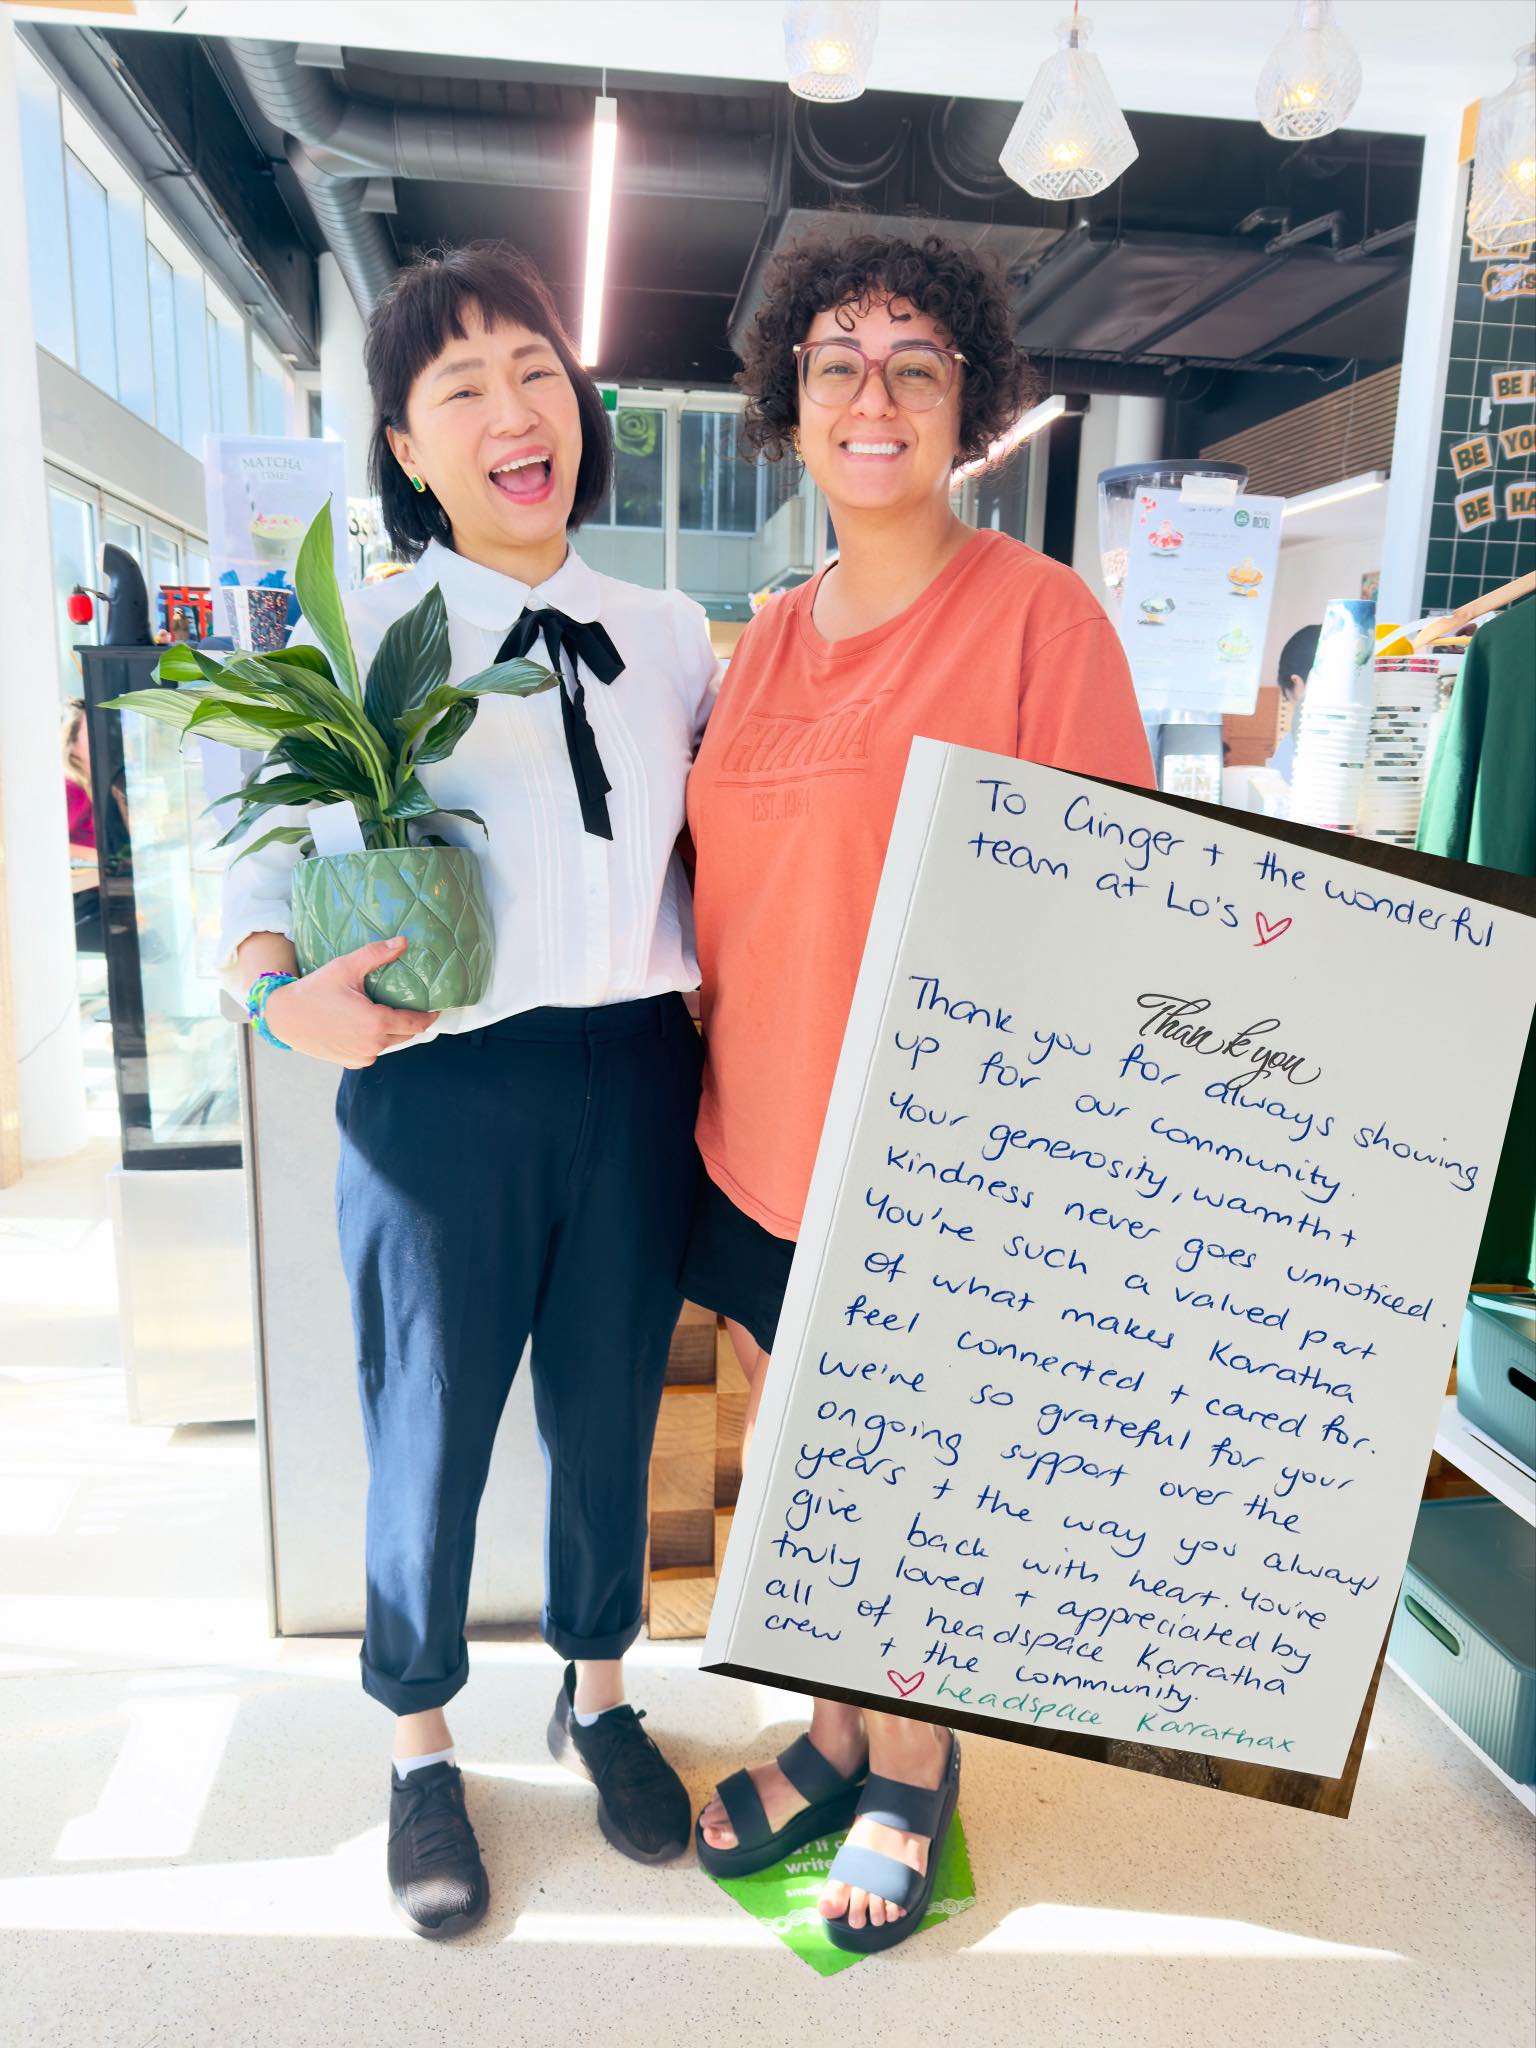 MATCHA
TIME!
33
GHANDA
EST. 1984
BE
BE YO
BE HA
To Ginger + the wonderful
team at Lo's
Thank you
Thank you for always showing
up for our community.
Your generosity, warmth +
kindness never goes unnoticed.
You're such a valued part
of what makes Karatha
feel connected + cared for.
We're so grateful for your
ongoing support over the
years + the way you always
give back with heart. You're
truly loved + appreciated by
all of headspace Karratha
crew + the community.
headspace Karratha x
write